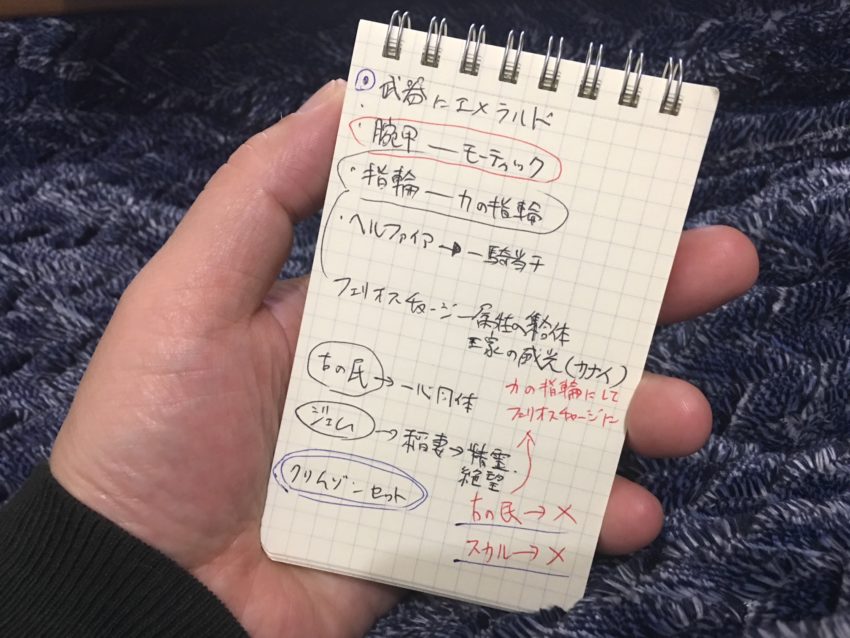 ・武器にエメラルド
・腕甲 ― モーティック
・指輪 ― 力の指輪
・ヘルファイア → 一騎当千
フェリオスチャージ ― 属性の
王家の威光 (カナイ)
古の氏 → 一心同体
力の指輪にして
フェリオスチャージに
ジェム → 稲妻 → 精霊・
絶望
クリムゾンセット
古の氏 → ×
スカル → ×